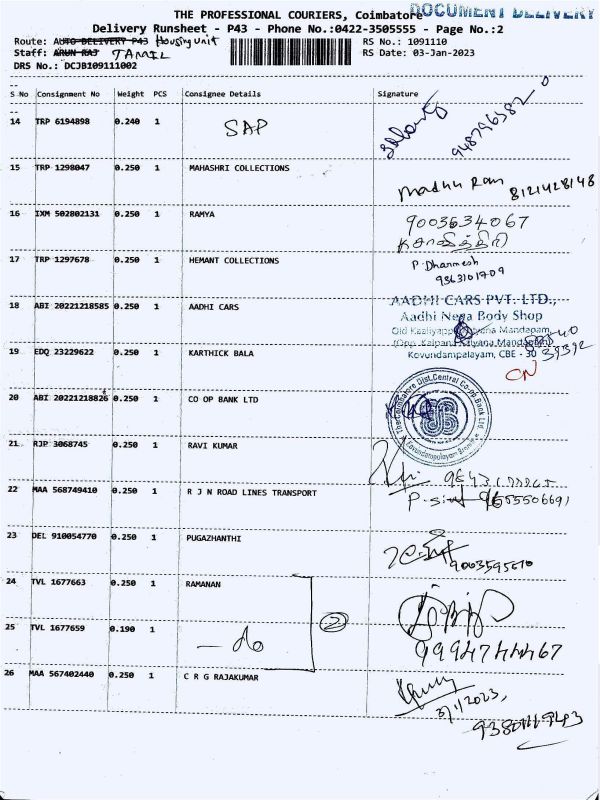 THE PROFESSIONAL COURIERS, Coimbatore
DOCUMENT DELIVERY
Delivery Runsheet - P43 - Phone No.:0422-3505555 - Page No.:2
Route: AUTO DELIVERY P43 Housing Unit
RS No.: 1091110
Staff: ARUN RAJ TAMIL
RS Date: 03-Jan-2023
DRS No.: DCJB109111002
S No Consignment No Weight PCS Consignee Details Signature
14 TRP 6194898 0.240 1 SAP
15 TRP 1298047 0.250 1 MAHASHRI COLLECTIONS
Madhu Ram 8121428148
16 IXM 502802131 0.250 1 RAMYA
9003634067
17 TRP 1297678 0.250 1 HEMANT COLLECTIONS
P. Dharmesh
9363101709
18 ABI 20221218585 0.250 1 AADHI CARS
AADHI CARS PVT. LTD.,
Aadhi Nega Body Shop
Kalyana Mandapam,
(Opp. Kalpana Kalyana Mandapam)
Kovundampalayam, CBE - 30
19 EDQ 23229622 0.250 1 KARTHICK BALA
CN
20 ABI 20221218826 0.250 1 CO OP BANK LTD
The Coimbatore Dist. Central Co-op. Bank Ltd.
21 RJP 3068745 0.250 1 RAVI KUMAR
22 MAA 568749410 0.250 1 R J N ROAD LINES TRANSPORT
23 DEL 910054770 0.250 1 PUGAZHANTHI
24 TVL 1677663 0.250 1 RAMANAN
2
25 TVL 1677659 0.190 1 — do
9994744467
26 MAA 567402440 0.250 1 C R G RAJAKUMAR
3/1/2023,